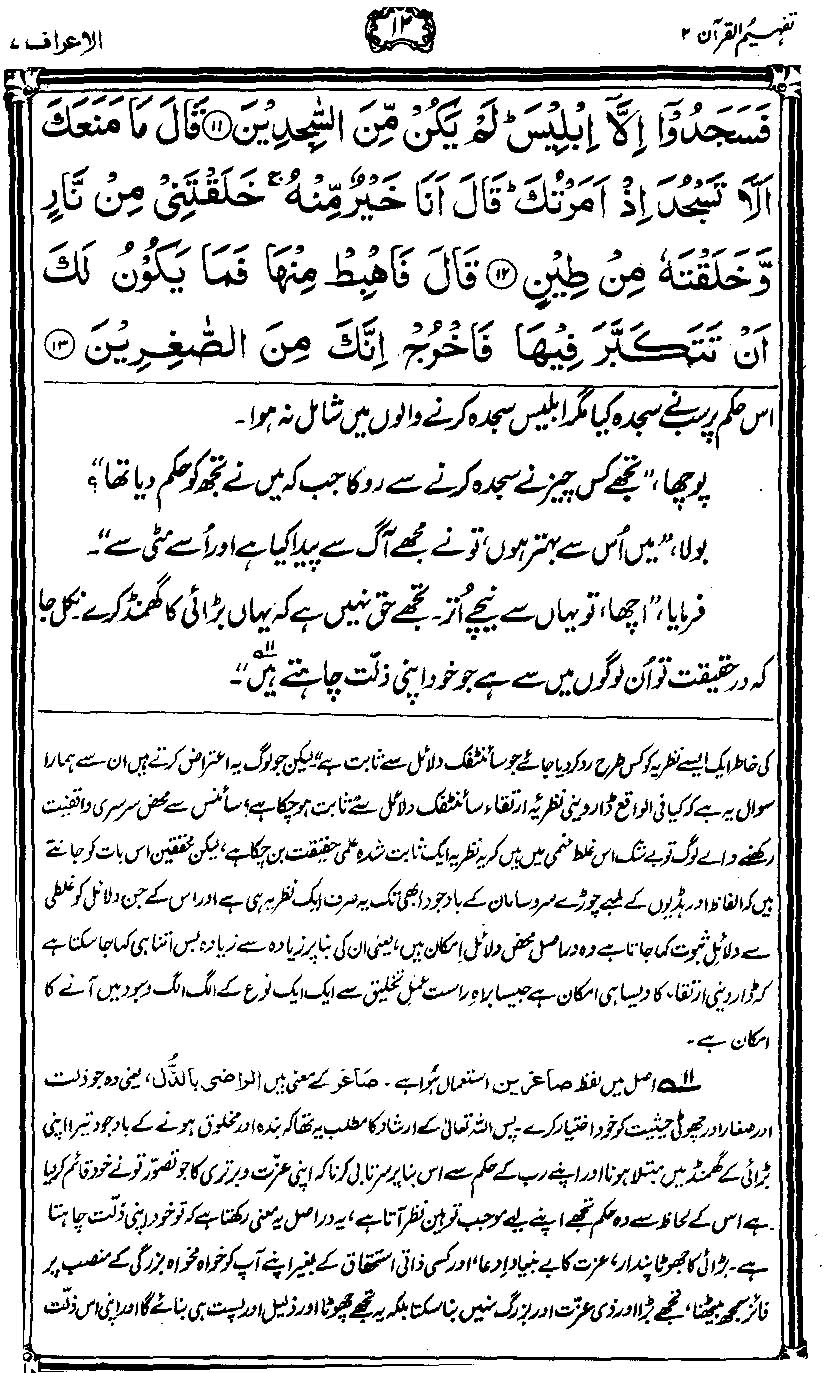 تفہیم القرآن ۲
۱۲
الاعراف ۷
فَسَجَدُوْٓا اِلَّآ اِبْلِيْسَ ؕ لَمْ يَكُنْ مِّنَ السّٰجِدِيْنَ ﴿۱۱﴾ قَالَ مَا مَنَعَكَ
اَلَّا تَسْجُدَ اِذْ اَمَرْتُكَ ؕ قَالَ اَنَا خَيْرٌ مِّنْهُ ۚ خَلَقْتَنِيْ مِنْ نَّارٍ
وَّخَلَقْتَهٗ مِنْ طِيْنٍ ﴿۱۲﴾ قَالَ فَاهْبِطْ مِنْهَا فَمَا يَكُوْنُ لَكَ
اَنْ تَتَكَبَّرَ فِيْهَا فَاخْرُجْ اِنَّكَ مِنَ الصّٰغِرِيْنَ ﴿۱۳﴾
اس حکم پر سب نے سجدہ کیا مگر ابلیس سجدہ کرنے والوں میں شامل نہ ہوا۔
پوچھا، ”تجھے کس چیز نے سجدہ کرنے سے روکا جب کہ میں نے تجھ کو حکم دیا تھا“؟
بولا، ”میں اُس سے بہتر ہوں، تو نے مجھے آگ سے پیدا کیا ہے اور اُسے مٹی سے“۔
فرمایا، ”اچھا، تو یہاں سے نیچے اُتر۔ تجھے حق نہیں ہے کہ یہاں بڑائی کا گھمنڈ کرے۔ نکل جا
کہ درحقیقت تو اُن لوگوں میں سے ہے جو خود اپنی ذلّت چاہتے ہیں ۱۱“۔
کی خاطر ایک ایسے نظریہ کو کس طرح رد کر دیا جائے جو سائنٹفک دلائل سے ثابت ہے“ لیکن جو لوگ یہ اعتراض کرتے ہیں ان سے ہمارا
سوال یہ ہے کہ کیا فی الواقع ڈاروینی نظریۂ ارتقاء سائنٹفک دلائل سے ثابت ہو چکا ہے؟ سائنس سے محض سرسری واقفیت
رکھنے والے لوگ تو بے شک اس غلط فہمی میں ہیں کہ یہ نظریہ ایک ثابت شدہ علمی حقیقت بن چکا ہے، لیکن محققین اس بات کو جانتے
ہیں کہ الفاظ اور ہڈیوں کے لمبے چوڑے سروسامان کے باوجود ابھی تک یہ صرف ایک نظریہ ہی ہے اور اس کے جن دلائل کو غلطی
سے دلائلِ ثبوت کہا جاتا ہے وہ دراصل محض دلائلِ امکان ہیں، یعنی ان کی بنا پر زیادہ سے زیادہ بس اتنا ہی کہا جا سکتا ہے
کہ ڈاروینی ارتقاء کا ویسا ہی امکان ہے جیسا براہِ راست عملِ تخلیق سے ایک ایک نوع کے الگ الگ وجود میں آنے کا
امکان ہے۔
۱۱ اصل میں لفظ صاغرین استعمال ہُوا ہے۔ صاغر کے معنی ہیں الراضی بالذُّل، یعنی وہ جو ذلت
اور صغار اور چھوٹی حیثیت کو خود اختیار کرے۔ پس اللہ تعالیٰ کے ارشاد کا مطلب یہ تھا کہ بندہ اور مخلوق ہونے کے باوجود تیرا اپنی
بڑائی کے گھمنڈ میں مبتلا ہونا اور اپنے رب کے حکم سے اس بنا پر سرتابی کرنا کہ اپنی عزّت و برتری کا جو تصوّر تو نے خود قائم کر لیا
ہے اس کے لحاظ سے وہ حکم تجھے اپنے لیے موجب توہین نظر آتا ہے، یہ دراصل یہ معنی رکھتا ہے کہ تو خود اپنی ذلّت چاہتا
ہے۔ بڑائی کا جھوٹا پندار، عزت کا بے بنیاد اِدعا، اور کسی ذاتی استحقاق کے بغیر اپنے آپ کو خواہ مخواہ بزرگی کے منصب پر
فائز سمجھ بیٹھنا، تجھے بڑا اور ذی عزّت اور بزرگ نہیں بنا سکتا بلکہ یہ تجھے چھوٹا اور ذلیل اور پست ہی بنائے گا اور اپنی اس ذلّت